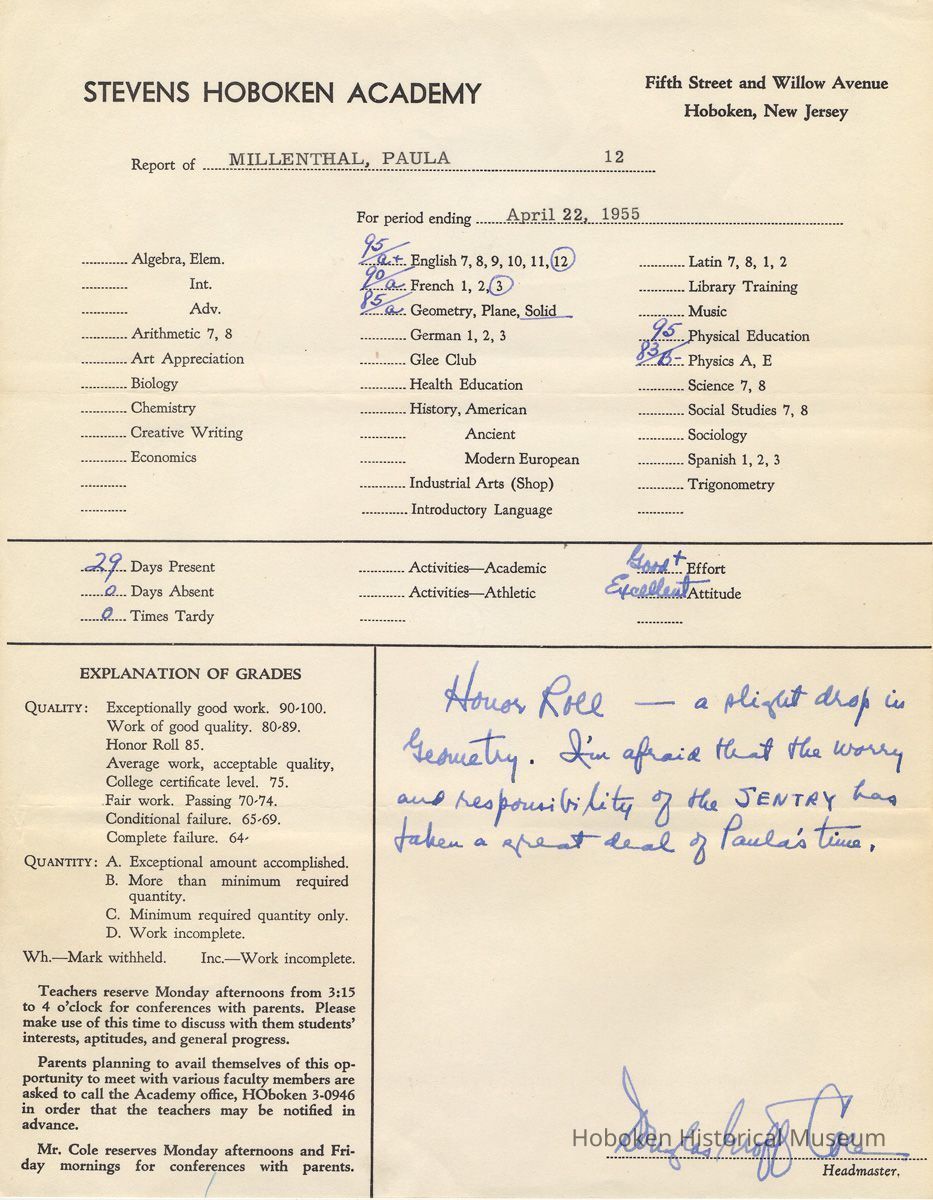 STEVENS HOBOKEN ACADEMY
Fifth Street and Willow Avenue
Hoboken, New Jersey
Report of MILLENTHAL, PAULA 12
For period ending April 22, 1955
Algebra, Elem.
Int.
Adv.
Arithmetic 7, 8
Art Appreciation
Biology
Chemistry
Creative Writing
Economics
95/a+ English 7, 8, 9, 10, 11, 12
90/a French 1, 2, 3
85/a Geometry, Plane, Solid
German 1, 2, 3
Glee Club
Health Education
History, American
Ancient
Modern European
Industrial Arts (Shop)
Introductory Language
Latin 7, 8, 1, 2
Library Training
Music
95 Physical Education
83/B- Physics A, E
Science 7, 8
Social Studies 7, 8
Sociology
Spanish 1, 2, 3
Trigonometry
29 Days Present
0 Days Absent
0 Times Tardy
Activities—Academic
Activities—Athletic
Good+ Effort
Excellent Attitude
EXPLANATION OF GRADES
QUALITY: Exceptionally good work. 90-100.
Work of good quality. 80-89.
Honor Roll 85.
Average work, acceptable quality,
College certificate level. 75.
Fair work. Passing 70-74.
Conditional failure. 65-69.
Complete failure. 64-
QUANTITY: A. Exceptional amount accomplished.
B. More than minimum required
quantity.
C. Minimum required quantity only.
D. Work incomplete.
Wh.—Mark withheld. Inc.—Work incomplete.
Teachers reserve Monday afternoons from 3:15
to 4 o'clock for conferences with parents. Please
make use of this time to discuss with them students'
interests, aptitudes, and general progress.
Parents planning to avail themselves of this op-
portunity to meet with various faculty members are
asked to call the Academy office, HOboken 3-0946
in order that the teachers may be notified in
advance.
Mr. Cole reserves Monday afternoons and Fri-
day mornings for conferences with parents.
Honor Roll — a slight drop in
Geometry. I'm afraid that the worry
and responsibility of the SENTRY has
taken a great deal of Paula's time.
Douglas Groff Cole
Hoboken Historical Museum
Headmaster.